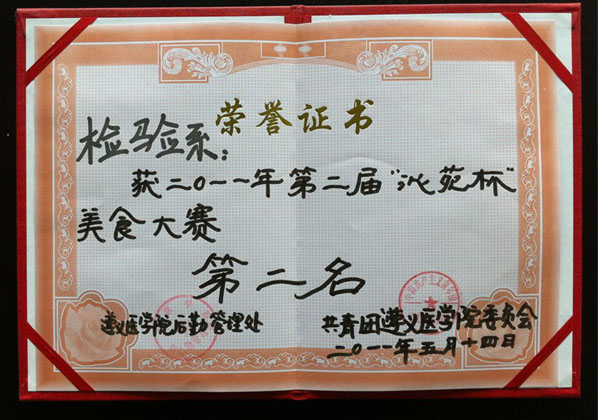 荣誉证书
检验系：
获二〇一一年第二届“沁苑杯”
美食大赛
第二名
遵义医学院后勤管理处 共青团遵义医学院委员会
二〇一一年五月十四日